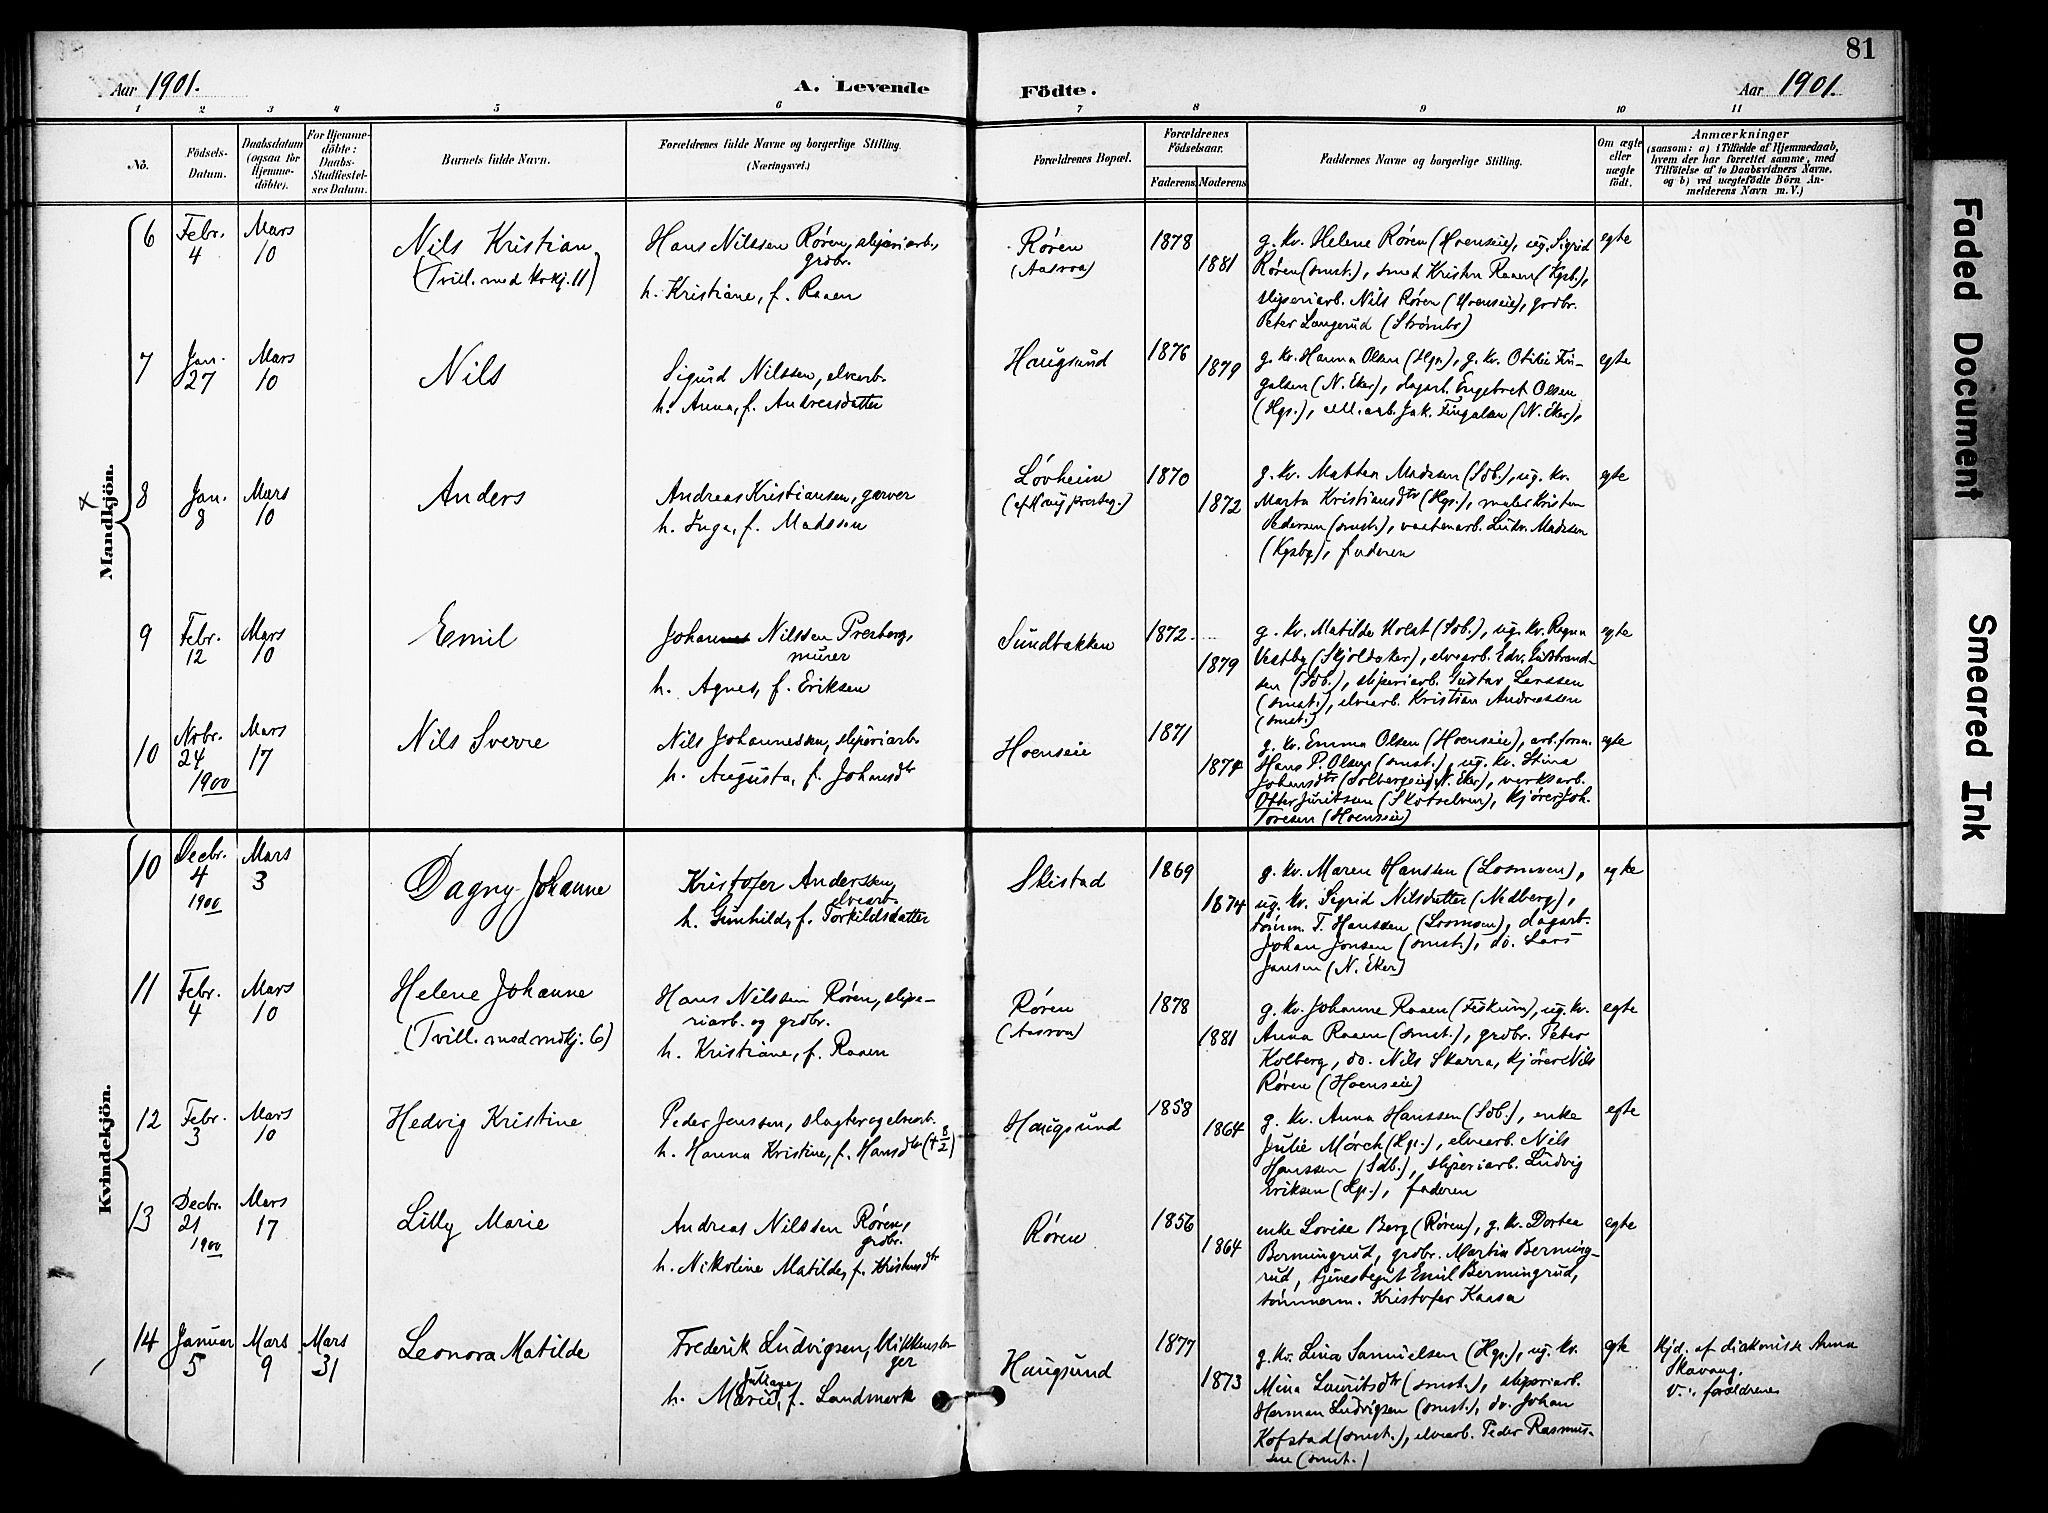 81
Aar 1901.
A. Levende Födte.
Aar 1901.
1 2 3 4 5 6 7 8 9 10 11
No.
Födsels-
Datum.
Daabsdatum
(ogsaa for
Hjemme-
döbte).
For Hjemme-
döbte:
Daabs-
Stadfæstel-
ses Datum.
Barnets fulde Navn.
Forældrenes fulde Navne og borgerlige Stilling.
(Næringsvei.)
Forældrenes Bopæl.
Forældrenes
Födselsaar.
Faderens Moderens
Faddernes Navne og borgerlige Stilling.
Om ægte
eller
uægte
födt.
Anmærkninger
(saasom: a) i Tilfælde af Hjemmedaab,
hvem der har forrettet samme, med
Tilföielse af to Daabsvidners Navne,
og b) ved uægtefödte Börn An-
melderens Navn m. V.)
Mandkjön.
6
Febr.
4
Mars
10
Nils Kristian
(Tvill. med kvkj. 11)
Hans Nilssen Røren, sliperiarb.,
grdbr.
h. Kristiane, f. Raaen
Røren
(Aasroa)
1878
1881
g. kv. Helene Røren (Hoenseie), ug. Sigrid
Røren (smst.), smed Kristen Raaen (Kgsb.),
sliperiarb. Nils Røren (Hoenseie), grdbr.
Peter Langerud (Strømbr)
egte
7
Jan.
27
Mars
10
Nils
Sigurd Nilssen, elvearb.
h. Anna, f. Andreasdatter
Haugsund
1876
1879
g. kv. Hanna Olsen (Hgs.), g. kv. Otilie Fin-
galsen (N. Eker), dagarb. Engebret Olsen
(Hgs.), cell. arb. Jak. Fingalsen (N. Eker),
egte
8
Jan.
8
Mars
10
Anders
Andreas Kristiansen, garver
h. Inga, f. Madssen
Løvheim
1870
1872
g. kv. Mathea Madssen (Sdb.), ug. kv.
Marta Kristiansdtr (Hgs.), maler Kristen
Pedersen (smst.), vaabenarb. Ludv. Madssen
(Kgsbg), faderen
egte
9
Febr.
12
Mars
10
Emil
Johannes Nilssen Præsberg,
murer
h. Agnes, f. Eriksen
Sundbakken
1872
1879
g. kv. Matilde Holst (Sdb.), ug. kv. Ragna
Vestby (Skjoldaker), elvearb. Edv. Gulbrand-
sen (Sdb.), sliperiarb. Gustav Larssen
(smst.), elvearb. Kristian Andreassen
(smst.)
egte
10
Novbr.
24
1900
Mars
17
Nils Sverre
Nils Johannessen, sliperiarb.
h. Augusta, f. Johansdtr
Hoenseie
1871
1874
g. kv. Emma Olsen (Hoenseie), arb. form.
Hans P. Olsen (smst.), ug. kv. Stina
Johansdtr (Solbergseie, N. Eker), verksarb.
Juritsen (Skotselven), kjører Joh.
Toresen (Hoenseie)
egte
Kvindekjön.
10
Decbr.
4
1900
Mars
3
Dagny Johanne
Kristofer Anderssen,
elvearb.
h. Gunhild, f. Torkildsdatter
Skistad
1869
1874
g. kv. Maren Hanssen (Losmoen),
ug. kv. Sigrid Nilsdatter (Nedberg),
tømm. T. Hanssen (Losmoen), dagarb.
Johan Jonsen (smst.), do. Lars
Jansen (N. Eker)
egte
11
Febr.
4
Mars
10
Helene Johanne
(Tvill. med mdkj. 6)
Hans Nilssen Røren, slipe-
riarb. og grdbr.
h. Kristiane, f. Raaen
Røren
(Aasroa)
1878
1881
g. kv. Johanne Raaen (Fiskum), ug. kv.
Anna Raaen (smst.), grdbr. Peter
Kolberg, do. Nils Skarra, kjører Nils
Røren (Hoenseie)
egte
12
Febr.
3
Mars
10
Hedvig Kristine
Peder Jenssen, slagter og elvearb.
h. Hanna Kristine, f. Hansdtr († 8/2)
Haugsund
1858
1864
g. kv. Anna Hanssen (Sdb.), enke
Julie Mørch (Hgs.), elvearb. Nils
Hanssen (Sdb.), sliperiarb. Ludvig
Eriksen (Hgs.), faderen
egte
13
Decbr.
21
1900
Mars
17
Lilly Marie
Andreas Nilssen Røren,
grdbr.
h. Nikoline Matilde, f. Kristensdtr
Røren
1856
1864
enke Lovise Berg (Røren), g. kv. Dortea
Bermingrud, grdbr. Martin Berming-
rud, tjenestegut Emil Bermingrud,
tømmerm. Kristofer Kaasa
egte
14
Januar
5
Mars
9
Mars
31
Leonora Matilde
Frederik Ludvigsen, blikkensla-
ger
h. Juliane Marie, f. Landmark
Haugsund
1877
1873
g. kv. Lina Samuelsen (Hgs.), ug. kv.
Mina Lauritsdtr (smst.), sliperiarb.
Herman Ludvigsen (smst.), do. Johan
Kofstad (smst.), elvearb. Peder Rasmus-
sen (smst.)
egte
Hjd. af diakonisse Anna
Skavang.
V.: forældrene
Faded Document
Smeared Ink